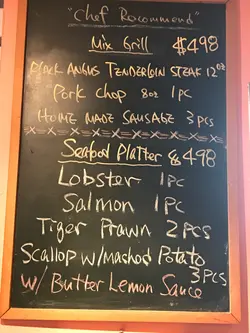 "Chef Recommend"
Mix Grill $498
Black Angus Tenderloin Steak 12oz
Pork Chop 8oz 1pc
Home Made Sausage 3pcs
Seafood Platter $498
Lobster 1pc
Salmon 1pc
Tiger Prawn 2pcs
Scallop w/ Mashod Potato
3pcs
w/ Butter Lemon Sauce